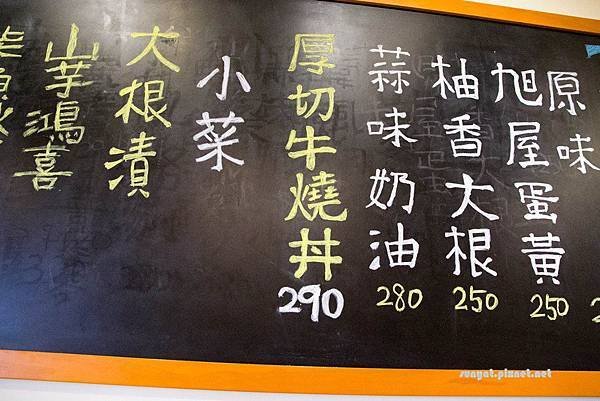 原味 2
旭屋蛋黃 250
柚香大根 250
蒜味奶油 280
厚切牛燒丼 290
小菜
大根漬
山芋鴻喜
sunyat.pixnet.net